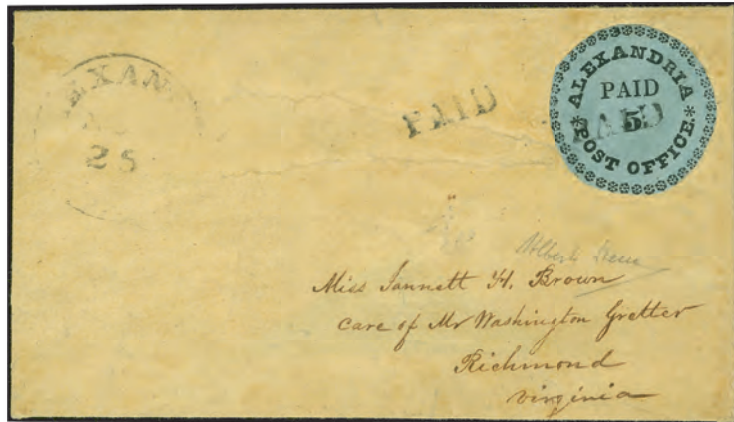 EXAN
25
PAID
ALEXANDRIA
PAID
5
PAID
POST OFFICE
Miss Jannett H. Brown
Care of Mr Washington Gretter
Richmond
Virginia